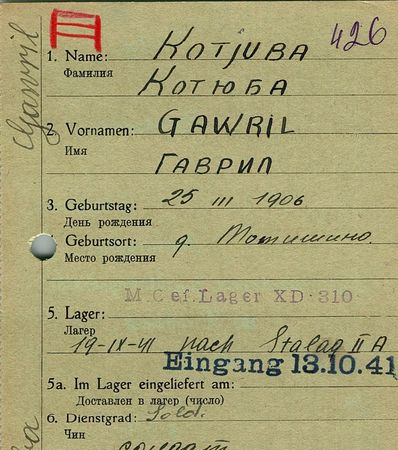 426
1. Name: KOTJUBA
Фамилия
КОТЮБА
2. Vornamen: GAWRIL
Имя
ГАВРИЛ
Gawril
3. Geburtstag: 25 III 1906
День рождения
4. Geburtsort: д.
Место рождения
M. Gef. Lager XD-310
5. Lager:
Лагер
19-IX-41 nach Stalag II A
Eingang 13.10.41
5a. Im Lager eingeliefert am:
Доставлен в лагер (число)
6. Dienstgrad: Sold.
Чин
солдат